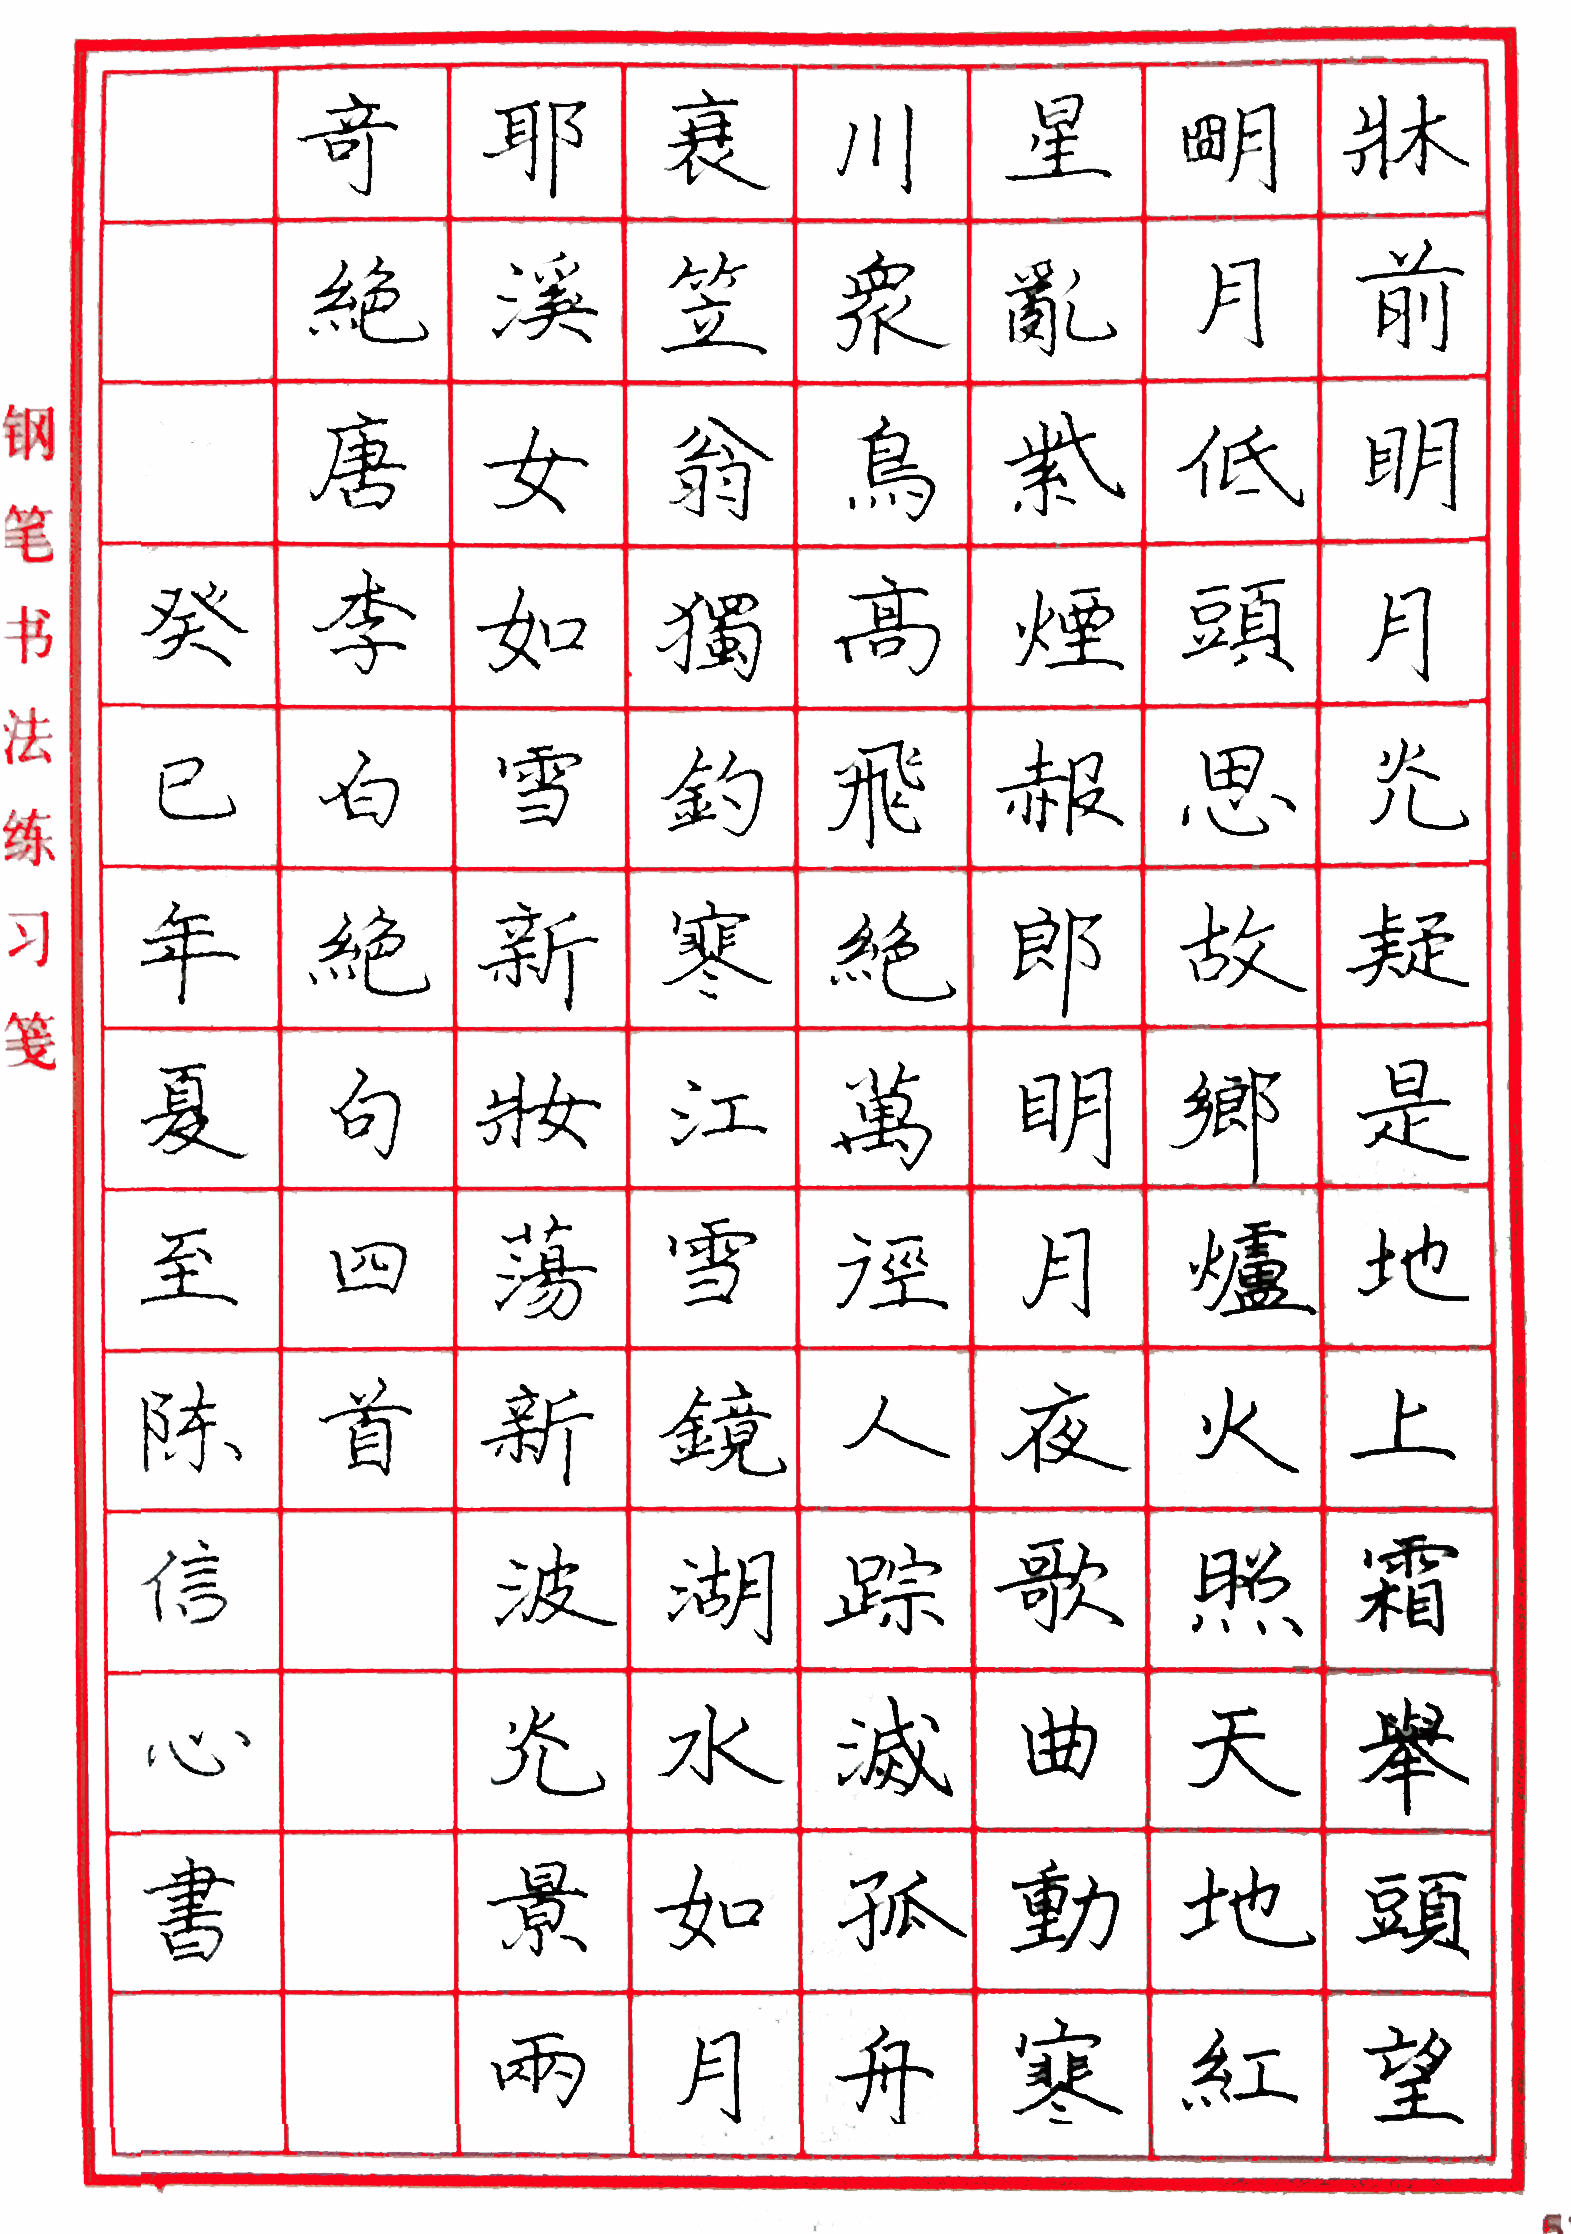 牀前明月光疑是地上霜舉頭望
朙月低頭思故鄉爐火照天地紅
星亂紫煙赧郎明月夜歌曲動寒
川衆鳥高飛絶萬徑人踪滅孤舟
衰笠翁獨釣寒江雪鏡湖水如月
耶溪女如雪新妝蕩新波光景兩
奇絶唐李白絶句四首
癸巳年夏至陈信心書
钢笔书法练习笺